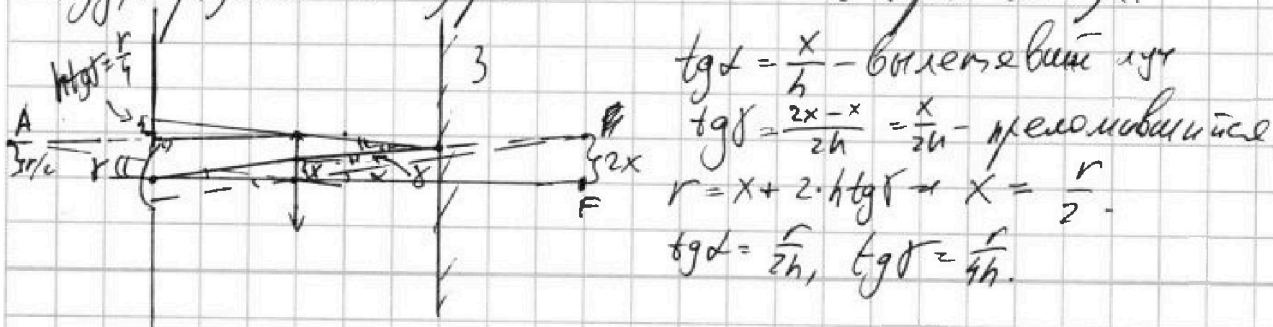 h tgγ = r/4
З
A
3r/2
γ
α
x
γ
2x
F
tgα = x/h - вылетевший луч
tgγ = (2x - x)/2h = x/2h - преломившийся
r = x + 2·h tgγ → x = r/2.
tgα = r/2h, tgγ = r/4h.